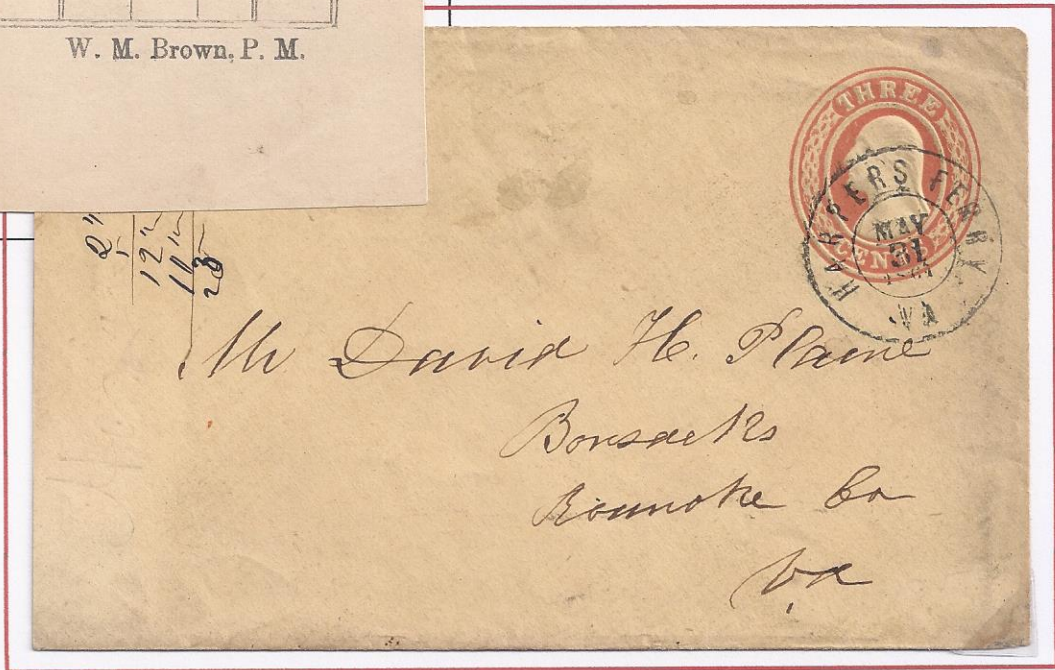 W. M. Brown, P. M.
THREE
CENTS
HARPERS FERRY
MAY
31
VA
12
Mr David H. Plaine
Bonsacks
Roanoke Co
Va